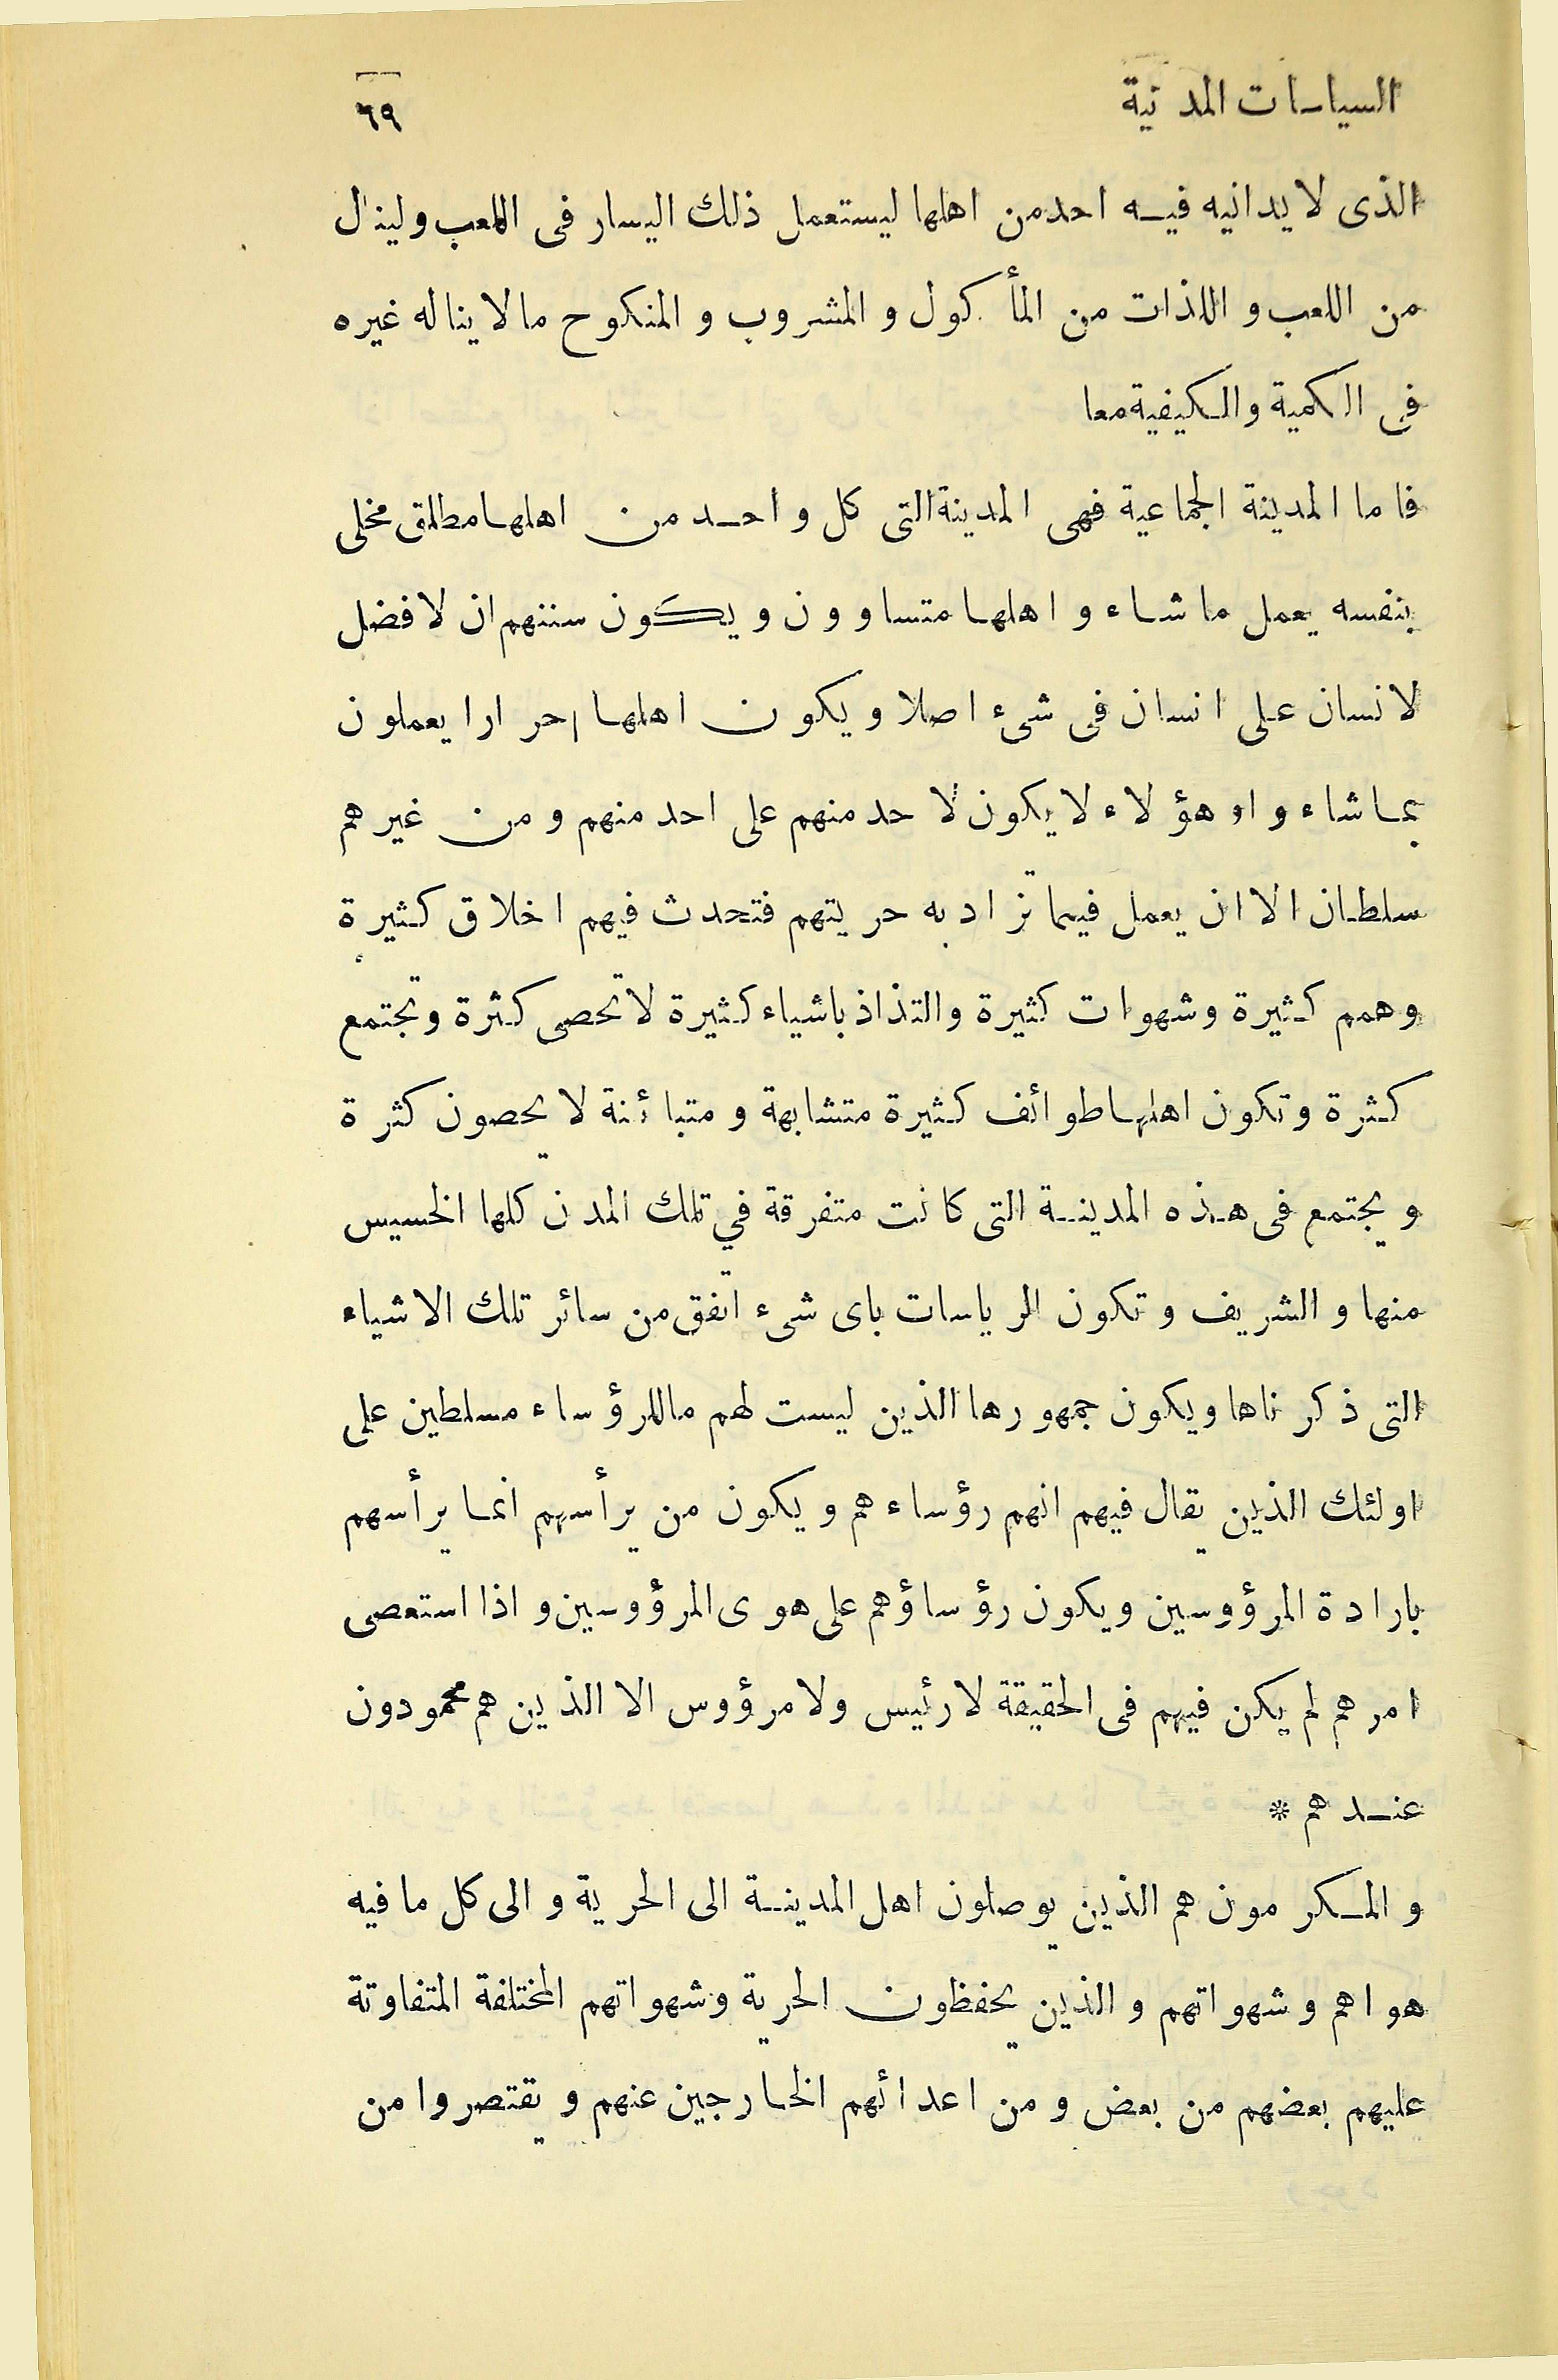 السياسات المدنية ٦٩
الذى لا يدانيه فيه احد من اهلها ليستعمل ذلك اليسار فى اللعب ولينال
من اللعب و اللذات من المأكول و المشروب و المنكوح مالا يناله غيره
فى الكمية والكيفية معا
فاما المدينة الجماعية فهى المدينة التى كل واحد من اهلها مطلق مخلى
بنفسه يعمل ما شاء و اهلها متساوون و يكون سننهم ان لا فضل
لانسان على انسان فى شىء اصلا و يكون اهلها احرارا يعملون
بماشاءوا وهؤلاء لا يكون لاحد منهم على احد منهم و من غيرهم
سلطان الا ان يعمل فيما تزاد به حريتهم فتحدث فيهم اخلاق كثيرة
وهمم كثيرة وشهوات كثيرة والتذاذ باشياء كثيرة لا تحصى كثرة وتجتمع
كثرة وتكون اهلها طوائف كثيرة متشابهة و متبائنة لا يحصون كثرة
و يجتمع فى هذه المدينة التى كانت متفرقة في تلك المدن كلها الخسيس
منها و الشريف و تكون الرياسات باى شىء اتفق من سائر تلك الاشياء
التى ذكرناها ويكون جمهورها الذين ليست لهم ماللرؤساء مسلطين على
اولئك الذين يقال فيهم انهم رؤساءهم و يكون من يرأسهم انما يرأسهم
بارادة المرؤوسين ويكون رؤساؤهم على هوى المرؤوسين و اذا استعصى
امرهم لم يكن فيهم فى الحقيقة لا رئيس ولا مرؤوس الا الذين هم محمودون
عندهم *
و المكرمون هم الذين يوصلون اهل المدينة الى الحرية و الى كل ما فيه
هواهم و شهواتهم و الذين يحفظون الحرية وشهواتهم المختلفة المتفاوتة
عليهم بعضهم من بعض و من اعدائهم الخارجين عنهم و يقتصروا من